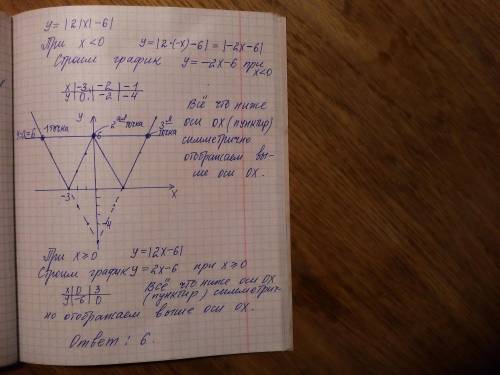 y = |2|x| - 6|
При x < 0 y = |2·(-x) - 6| = |-2x - 6|
Строим график y = -2x - 6 при x < 0
x | -3 | -2 | -1
y | 0 | -2 | -4
Всё что ниже
оси OX (пунктир)
симметрично
отображаем вы-
ше оси OX.
y
y=a=6 1 точка 2-ая точка 3-я точка
6
-3
x
-4
При x ≥ 0 y = |2x - 6|
Строим график y = 2x - 6 при x ≥ 0
x | 0 | 3
y | -6 | 0
Всё что ниже оси OX
(пунктир) симметрич-
но отображаем выше оси OX.
Ответ: 6.